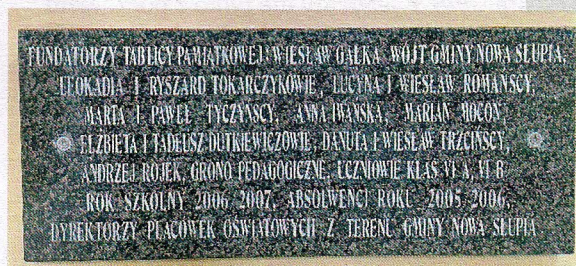 FUNDATORZY TABLICY PAMIĄTKOWEJ: WIESŁAW GAŁKA WÓJT GMINY NOWA SŁUPIA,
LEOKADIA I RYSZARD TOKARCZYKOWIE, LUCYNA I WIESŁAW ROMAŃSCY,
MARTA I PAWEŁ TYCZYŃSCY, ANNA IWAŃSKA, MARIAN MOCOŃ,
ELŻBIETA I TADEUSZ DUTKIEWICZOWIE, DANUTA I WIESŁAW TRZCIŃSCY,
ANDRZEJ ROJEK, GRONO PEDAGOGICZNE, UCZNIOWIE KLAS VI A, VI B
ROK SZKOLNY 2006/2007, ABSOLWENCI ROKU 2005/2006,
DYREKTORZY PLACÓWEK OŚWIATOWYCH Z TERENU GMINY NOWA SŁUPIA